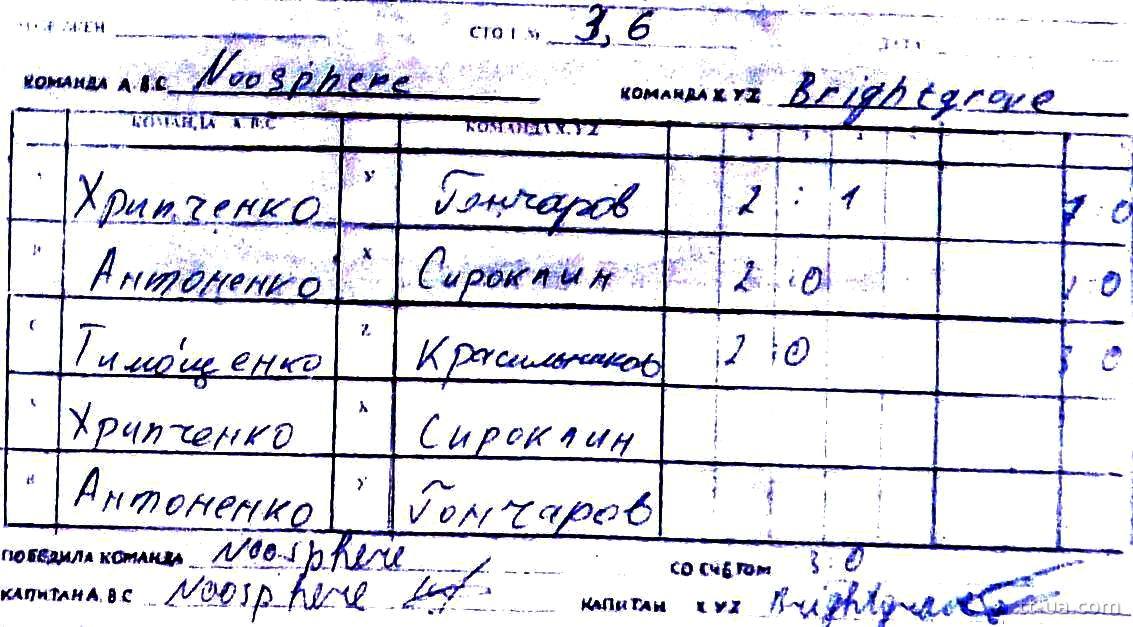 СТОЛ № 3, 6 ДАТА
КОМАНДА А В С Noosphere КОМАНДА X Y Z Brightgrove
КОМАНДА А В С КОМАНДА X, Y Z 2 3 4 5
А Хрипченко Y Гончаров 2 : 1 1 0
В Антоненко X Сироклин 2 0 1 0
С Тимощенко Z Красильников 2 : 0 3 0
А Хрипченко X Сироклин
В Антоненко Y Гончаров
ПОБЕДИЛА КОМАНДА Noosphere СО СЧЁТОМ 3 0
КАПИТАН А, В С Noosphere КАПИТАН X Y Z Brightgrove
tt.ua.com